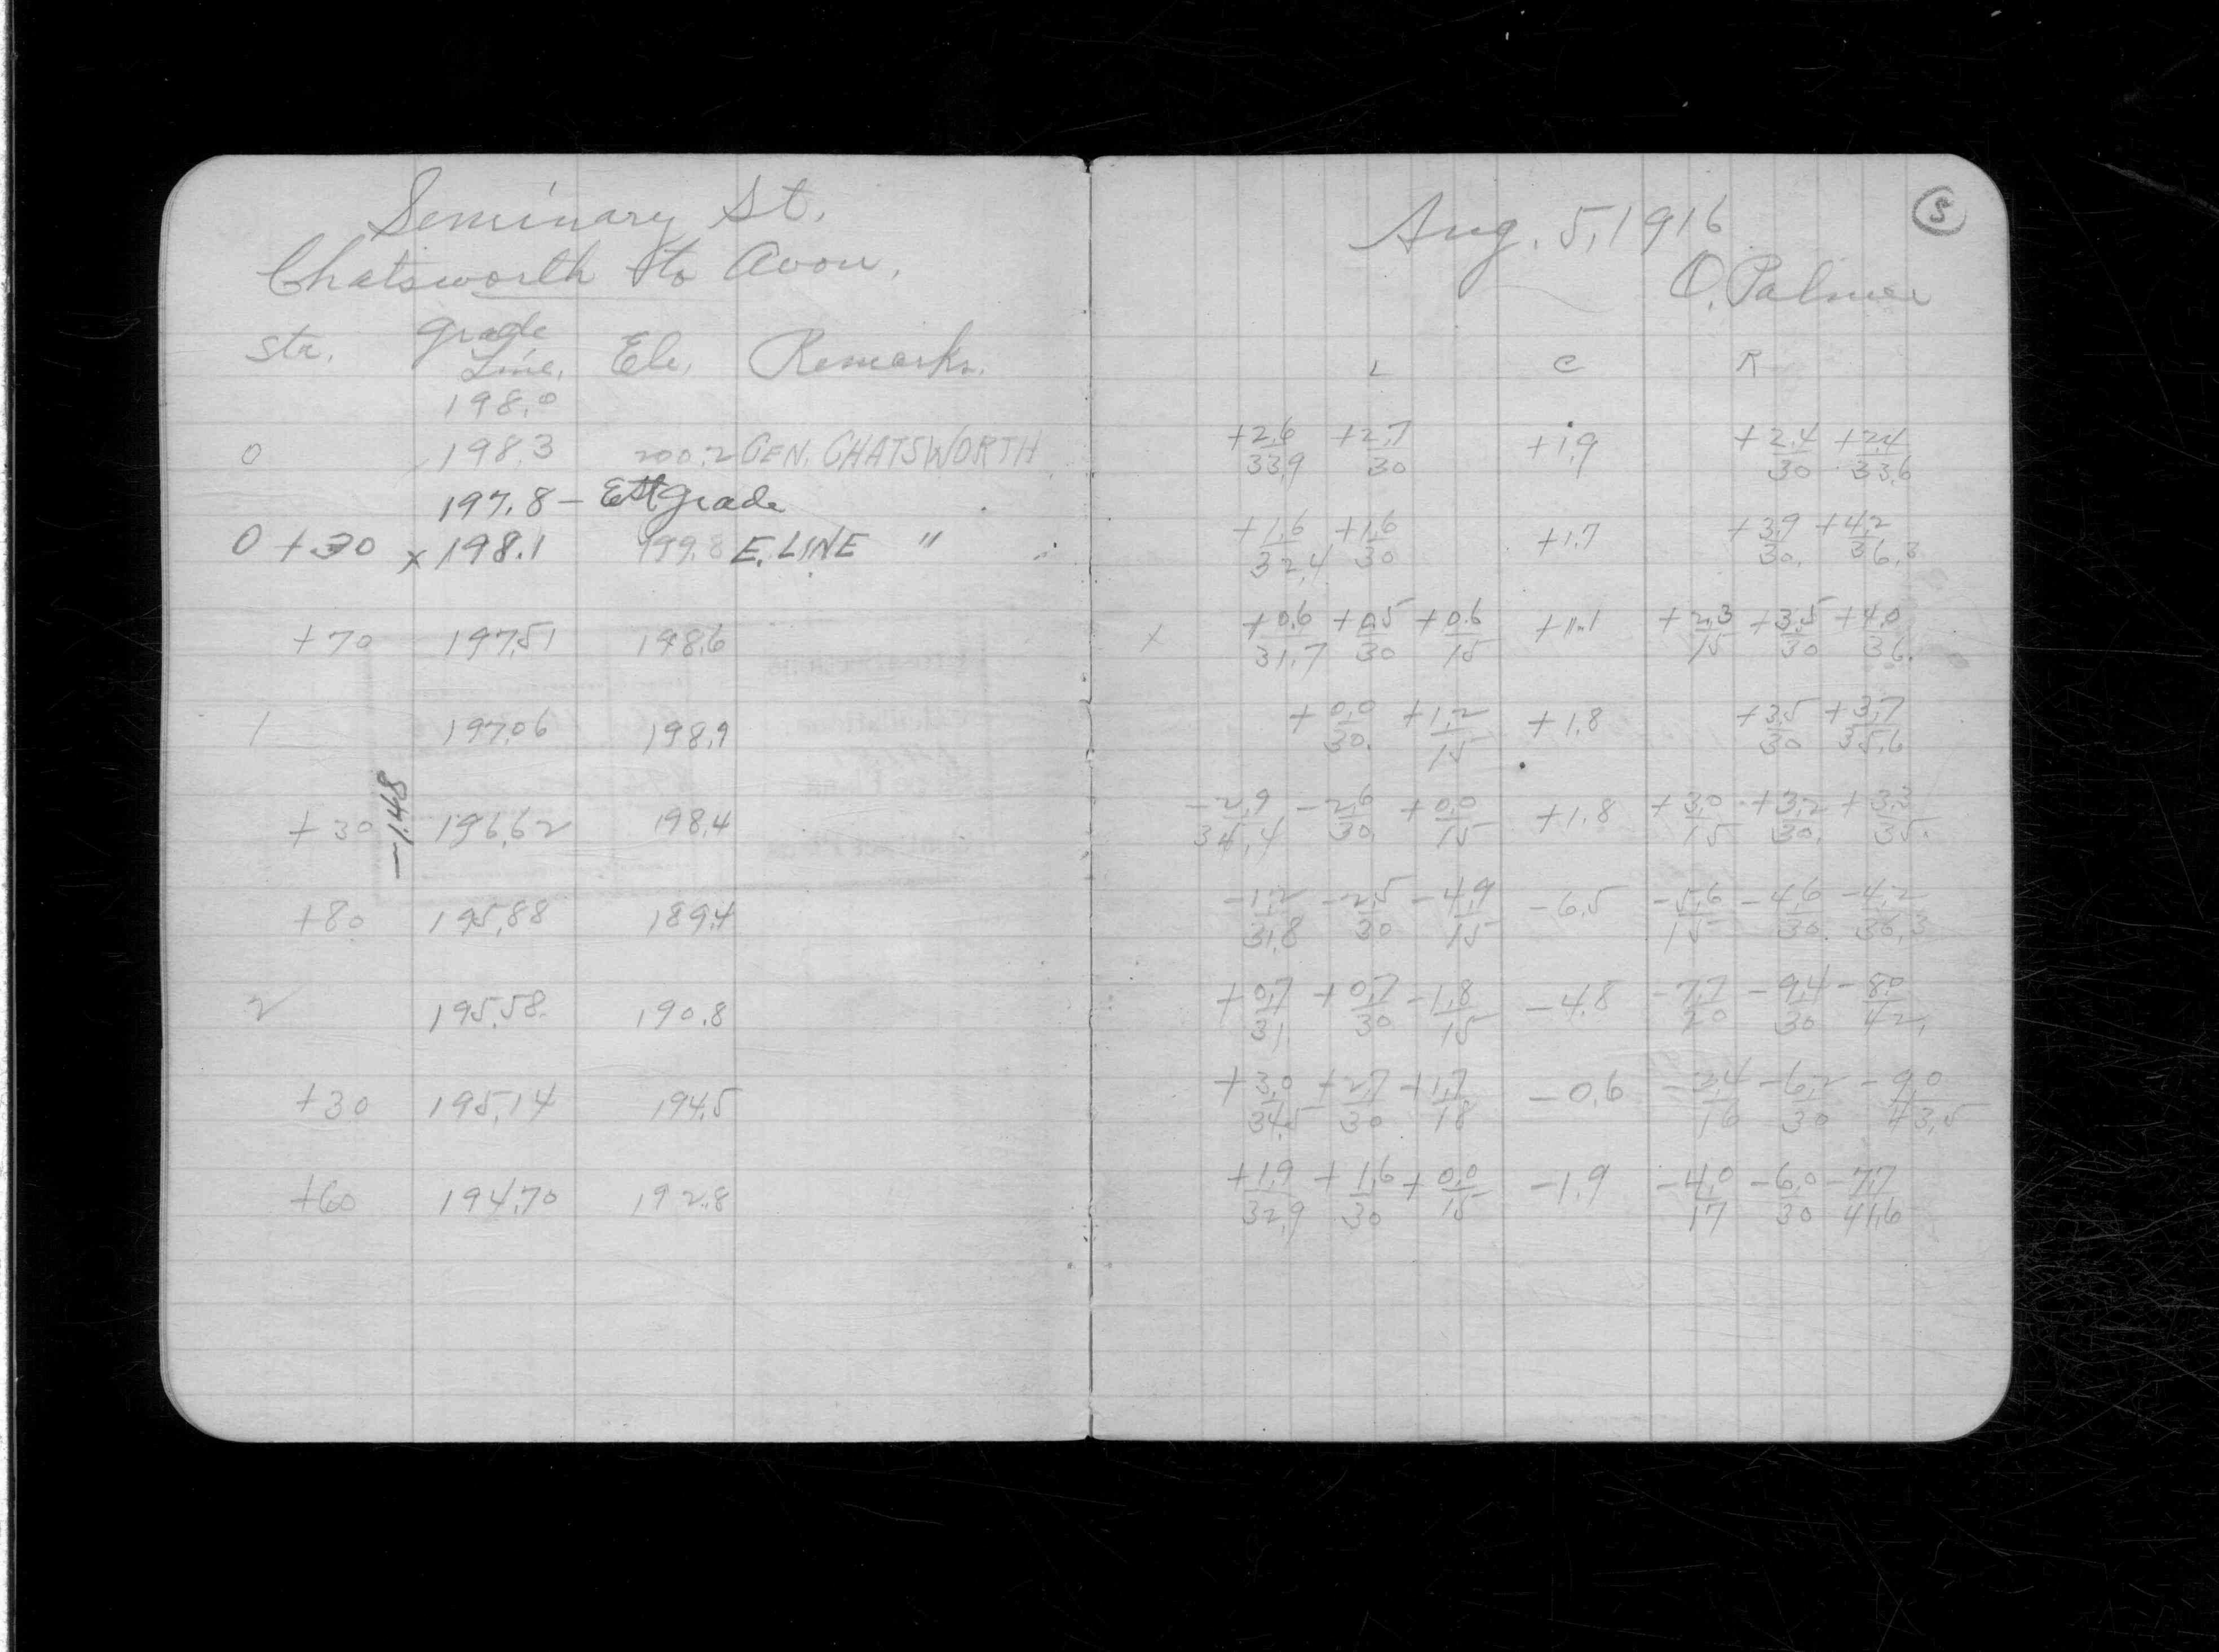 Seminary St.
Chatsworth to Avon.
Sta. Grade Line. Ele. Remarks.
198.0
0 198.3 200.2 CEN. CHATSWORTH
197.8 - Est grade
0 +30 x 198.1 199.8 E. LINE "
+70 197.51 198.6
1 197.06 198.9
-1.48
+30 196.62 198.4
+80 195.88 189.4
2 195.58 190.8
+30 195.14 194.5
+60 194.70 192.8
Aug. 5, 1916
5
O. Palmer
L C R
+2.6/33.9 +2.7/30 +1.9 +2.4/30 +2.4/33.6
+1.6/32.4 +1.6/30 +1.7 +3.9/30. +4.2/36.3
x +0.6/31.7 +0.5/30 +0.6/15 +1.1 +2.3/15 +3.5/30 +4.0/36.
+0.0/30. +1.2/15 +1.8 +3.5/30 +3.7/35.6
-2.9/34.4 -2.6/30. +0.0/15 +1.8 +3.0/15 +3.2/30. +3.3/35.
-1.2/31.8 -2.5/30 -4.9/15 -6.5 -5.6/15 -4.6/30. -4.2/36.3
+0.7/31. +0.7/30 -1.8/15 -4.8 -7.7/20 -9.4/30 -8.0/42.
+3.0/34.5 +2.7/30 +1.7/18 -0.6 -2.4/16 -6.2/30 -9.0/43.5
+1.9/32.9 +1.6/30 +0.0/15 -1.9 -4.0/17 -6.0/30 -7.7/41.6